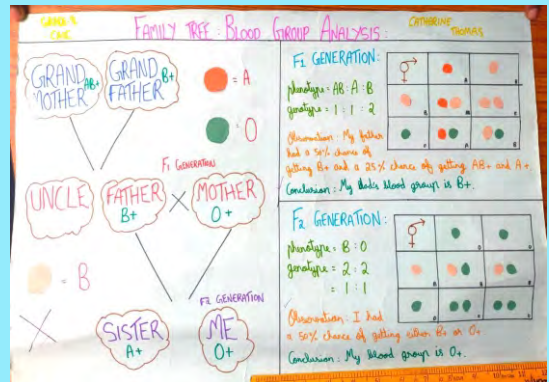 GRADE 9
CMC
FAMILY TREE : BLOOD GROUP ANALYSIS :
CATHARINE
THOMAS
GRAND
MOTHER
AB+
GRAND
FATHER
B+
= A
= O
F1 GENERATION
UNCLE
FATHER
B+
X
MOTHER
O+
= B
F2 GENERATION
SISTER
A+
ME
O+
F1 GENERATION:
phenotype = AB : A : B
genotype = 1 : 1 : 2
Observation : My father
had a 50% chance of
getting B+ and a 25% chance of getting AB+ and A+.
Conclusion : My dad's blood group is B+.
F2 GENERATION:
phenotype = B : O
genotype = 2 : 2
= 1 : 1
Observation : I had
a 50% chance of getting either B+ or O+.
Conclusion : My blood group is O+.